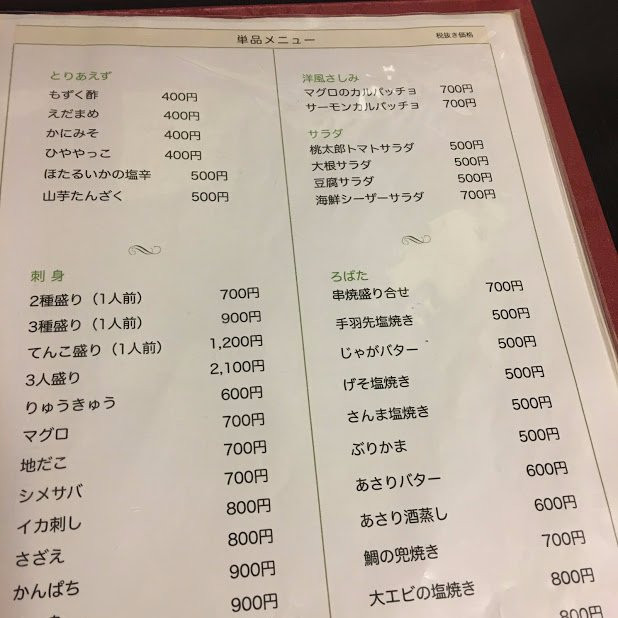 単品メニュー 税抜き価格
とりあえず
もずく酢 400円
えだまめ 400円
かにみそ 400円
ひややっこ 400円
ほたるいかの塩辛 500円
山芋たんざく 500円
刺身
2種盛り（1人前） 700円
3種盛り（1人前） 900円
てんこ盛り（1人前） 1,200円
3人盛り 2,100円
りゅうきゅう 600円
マグロ 700円
地だこ 700円
シメサバ 700円
イカ刺し 800円
さざえ 800円
かんぱち 900円
900円
洋風さしみ
マグロのカルパッチョ 700円
サーモンカルパッチョ 700円
サラダ
桃太郎トマトサラダ 500円
大根サラダ 500円
豆腐サラダ 500円
海鮮シーザーサラダ 700円
ろばた
串焼盛り合せ 700円
手羽先塩焼き 500円
じゃがバター 500円
げそ塩焼き 500円
さんま塩焼き 500円
ぶりかま 500円
あさりバター 600円
あさり酒蒸し 600円
鯛の兜焼き 700円
大エビの塩焼き 800円
800円